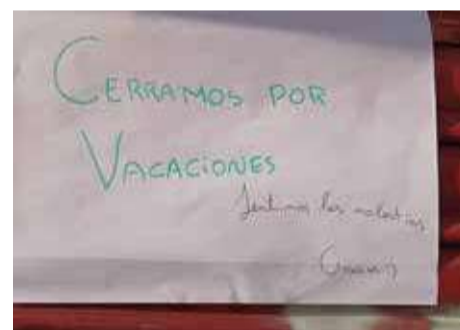 CERRAMOS POR
VACACIONES
Sentimos las molestias
Gracias